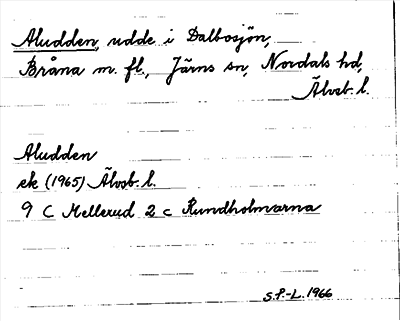 Aludden, udde i Dalbosjön,
Bråna m. fl., Järns sn, Nordals hd,
Älvsb. l.
Aludden
ek (1965) Älvsb. l.
9 C Mellerud 2 c Rundholmarna
S.P.-L. 1966